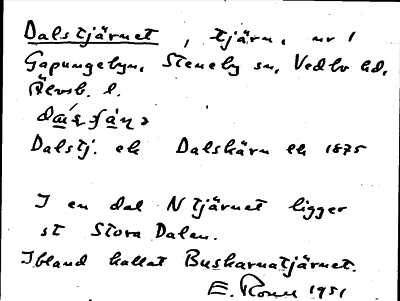 Dalstjärnet, tjärn. nr 1
Gapungebyn, Steneby sn, Vedbo hd,
Älvsb. l.
Dalstj. ek Dalskärn ek 1875
I en dal N tjärnet ligger
st Stora Dalen.
Ibland kallat Buskarnatjärnet.
E. 1951